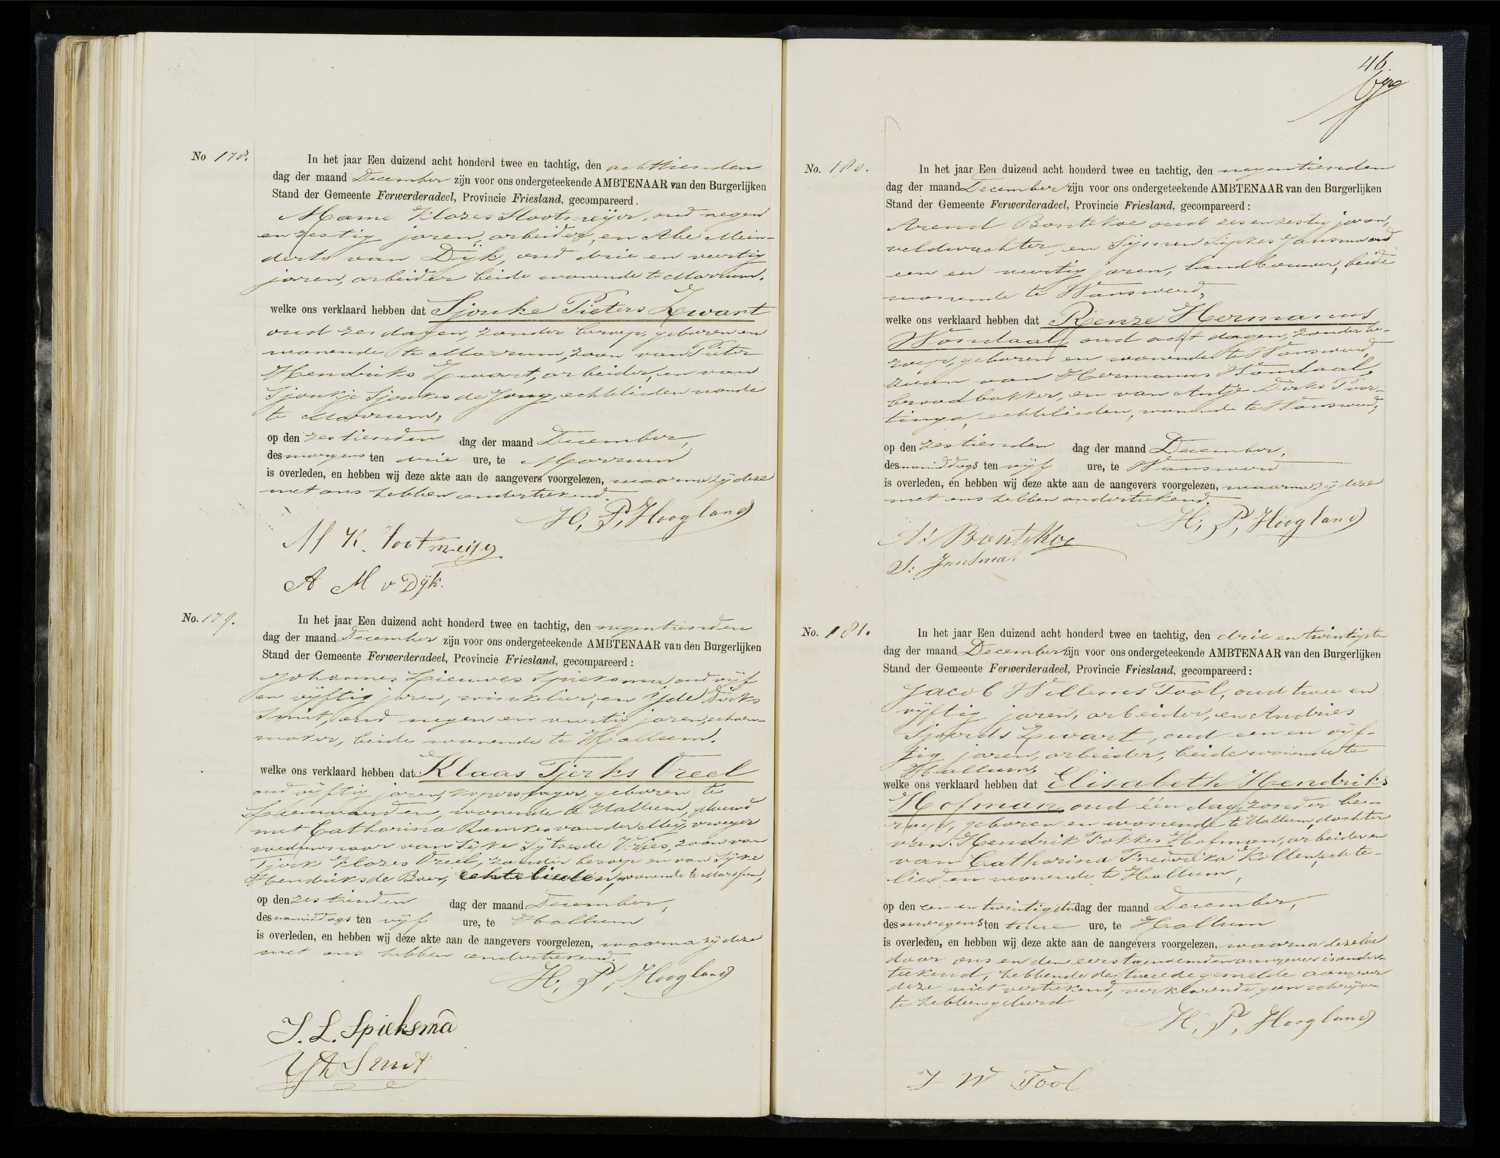 No 178.
In het jaar Een duizend acht honderd twee en tachtig, den achttienden
dag der maand December zijn voor ons ondergeteekende AMBTENAAR van den Burgerlijken
Stand der Gemeente Ferwerderadeel, Provincie Friesland, gecompareerd.
Mame Klazes Slootmeijer, oud negen
en zestig jaren, arbeider, en Abe Mein-
derts van Dijk, oud drie en veertig
jaren, arbeider beide wonende te Marrum.
welke ons verklaard hebben dat Sjouke Pieters Zwart
oud zes dagen, zonder beroep, geboren en
wonende te Marrum, zoon van Pieter
Hendriks Zwart, arbeider, en van
Sjoukje Sjoukes de Jong, echtelieden wonde
te Marrum,
op den zestienden dag der maand December,
des morgens ten drie ure, te Marrum
is overleden, en hebben wij deze akte aan de aangevers voorgelezen, waarna zij deze
met ons hebben onderteekend.
H. P. Hoogland
M K. Slootmeijer
A M v Dijk.
No. 179.
In het jaar Een duizend acht honderd twee en tachtig, den negentienden
dag der maand December zijn voor ons ondergeteekende AMBTENAAR van den Burgerlijken
Stand der Gemeente Ferwerderadeel, Provincie Friesland, gecompareerd:
Johannes Lieuwes Spieksma oud vijf
en vijftig jaren, winkelier, en Ijde Durks
Smit, oud negen en veertig jaren, schoen-
maker, beide wonende te Hallum.
welke ons verklaard hebben dat Klaas Tjerks Oreel
oud vijftig jaren, geboren te
wonende te Hallum, gehuwd
met Catharina van der Meij, vroeger
weduwnaar van zoon van
Tjerk Klazes Oreel, zonder beroep en van
Hendriks de Boer, echtelieden, wonende te
op den zestienden dag der maand December,
des namiddags ten vijf ure, te Hallum
is overleden, en hebben wij deze akte aan de aangevers voorgelezen, waarna zij deze
met ons hebben onderteekend.
H. P. Hoogland
J. L. Spieksma
46
No. 180.
In het jaar Een duizend acht honderd twee en tachtig, den negentienden
dag der maand December zijn voor ons ondergeteekende AMBTENAAR van den Burgerlijken
Stand der Gemeente Ferwerderadeel, Provincie Friesland, gecompareerd:
Arend Bontekoe oud zes en zestig jaren,
veldwachter, en Sijmen Sipkes Jansma oud
een en veertig jaren, landbouwer, beide
wonende te Wanswerd,
welke ons verklaard hebben dat Rienze Hermanus
Wondaal, oud acht dagen, zonder be-
roep, geboren en wonende te Wanswerd,
zoon van Hermanus Wondaal,
broodbakker, en van Antje Dirks
echtelieden, wonende te Wanswerd,
op den zestienden dag der maand December,
des namiddags ten vijf ure, te Wanswerd
is overleden, en hebben wij deze akte aan de aangevers voorgelezen, waarna zij deze
met ons hebben onderteekend.
H. P. Hoogland
A: Bontekoe
S: Jansma.
No. 181.
In het jaar Een duizend acht honderd twee en tachtig, den drie en twintigste
dag der maand December zijn voor ons ondergeteekende AMBTENAAR van den Burgerlijken
Stand der Gemeente Ferwerderadeel, Provincie Friesland, gecompareerd:
Jacob Willems Tool, oud twee en
vijftig jaren, arbeider, en Andries
Sjoerds Zwart, oud een en vijf-
tig jaren, arbeider, beide wonende te
Hallum,
welke ons verklaard hebben dat Elisabeth Hendriks
Hofman, oud één dag, zonder be-
roep, geboren en wonende te Hallum, dochter
van Hendrik Fokkes Hofman, arbeider en
van Catharina Frederika echte-
lieden wonende te Hallum,
op den een en twintigsten dag der maand December,
des morgens ten ure, te Hallum
is overleden, en hebben wij deze akte aan de aangevers voorgelezen, waarna dezelve
door ons en den eerstgenoemden aangever is onder-
teekend, hebbende de tweede gemelde aangever
deze niet verteekend, verklarende geen schrijven
te hebben geleerd
H. P. Hoogland
J W Tool